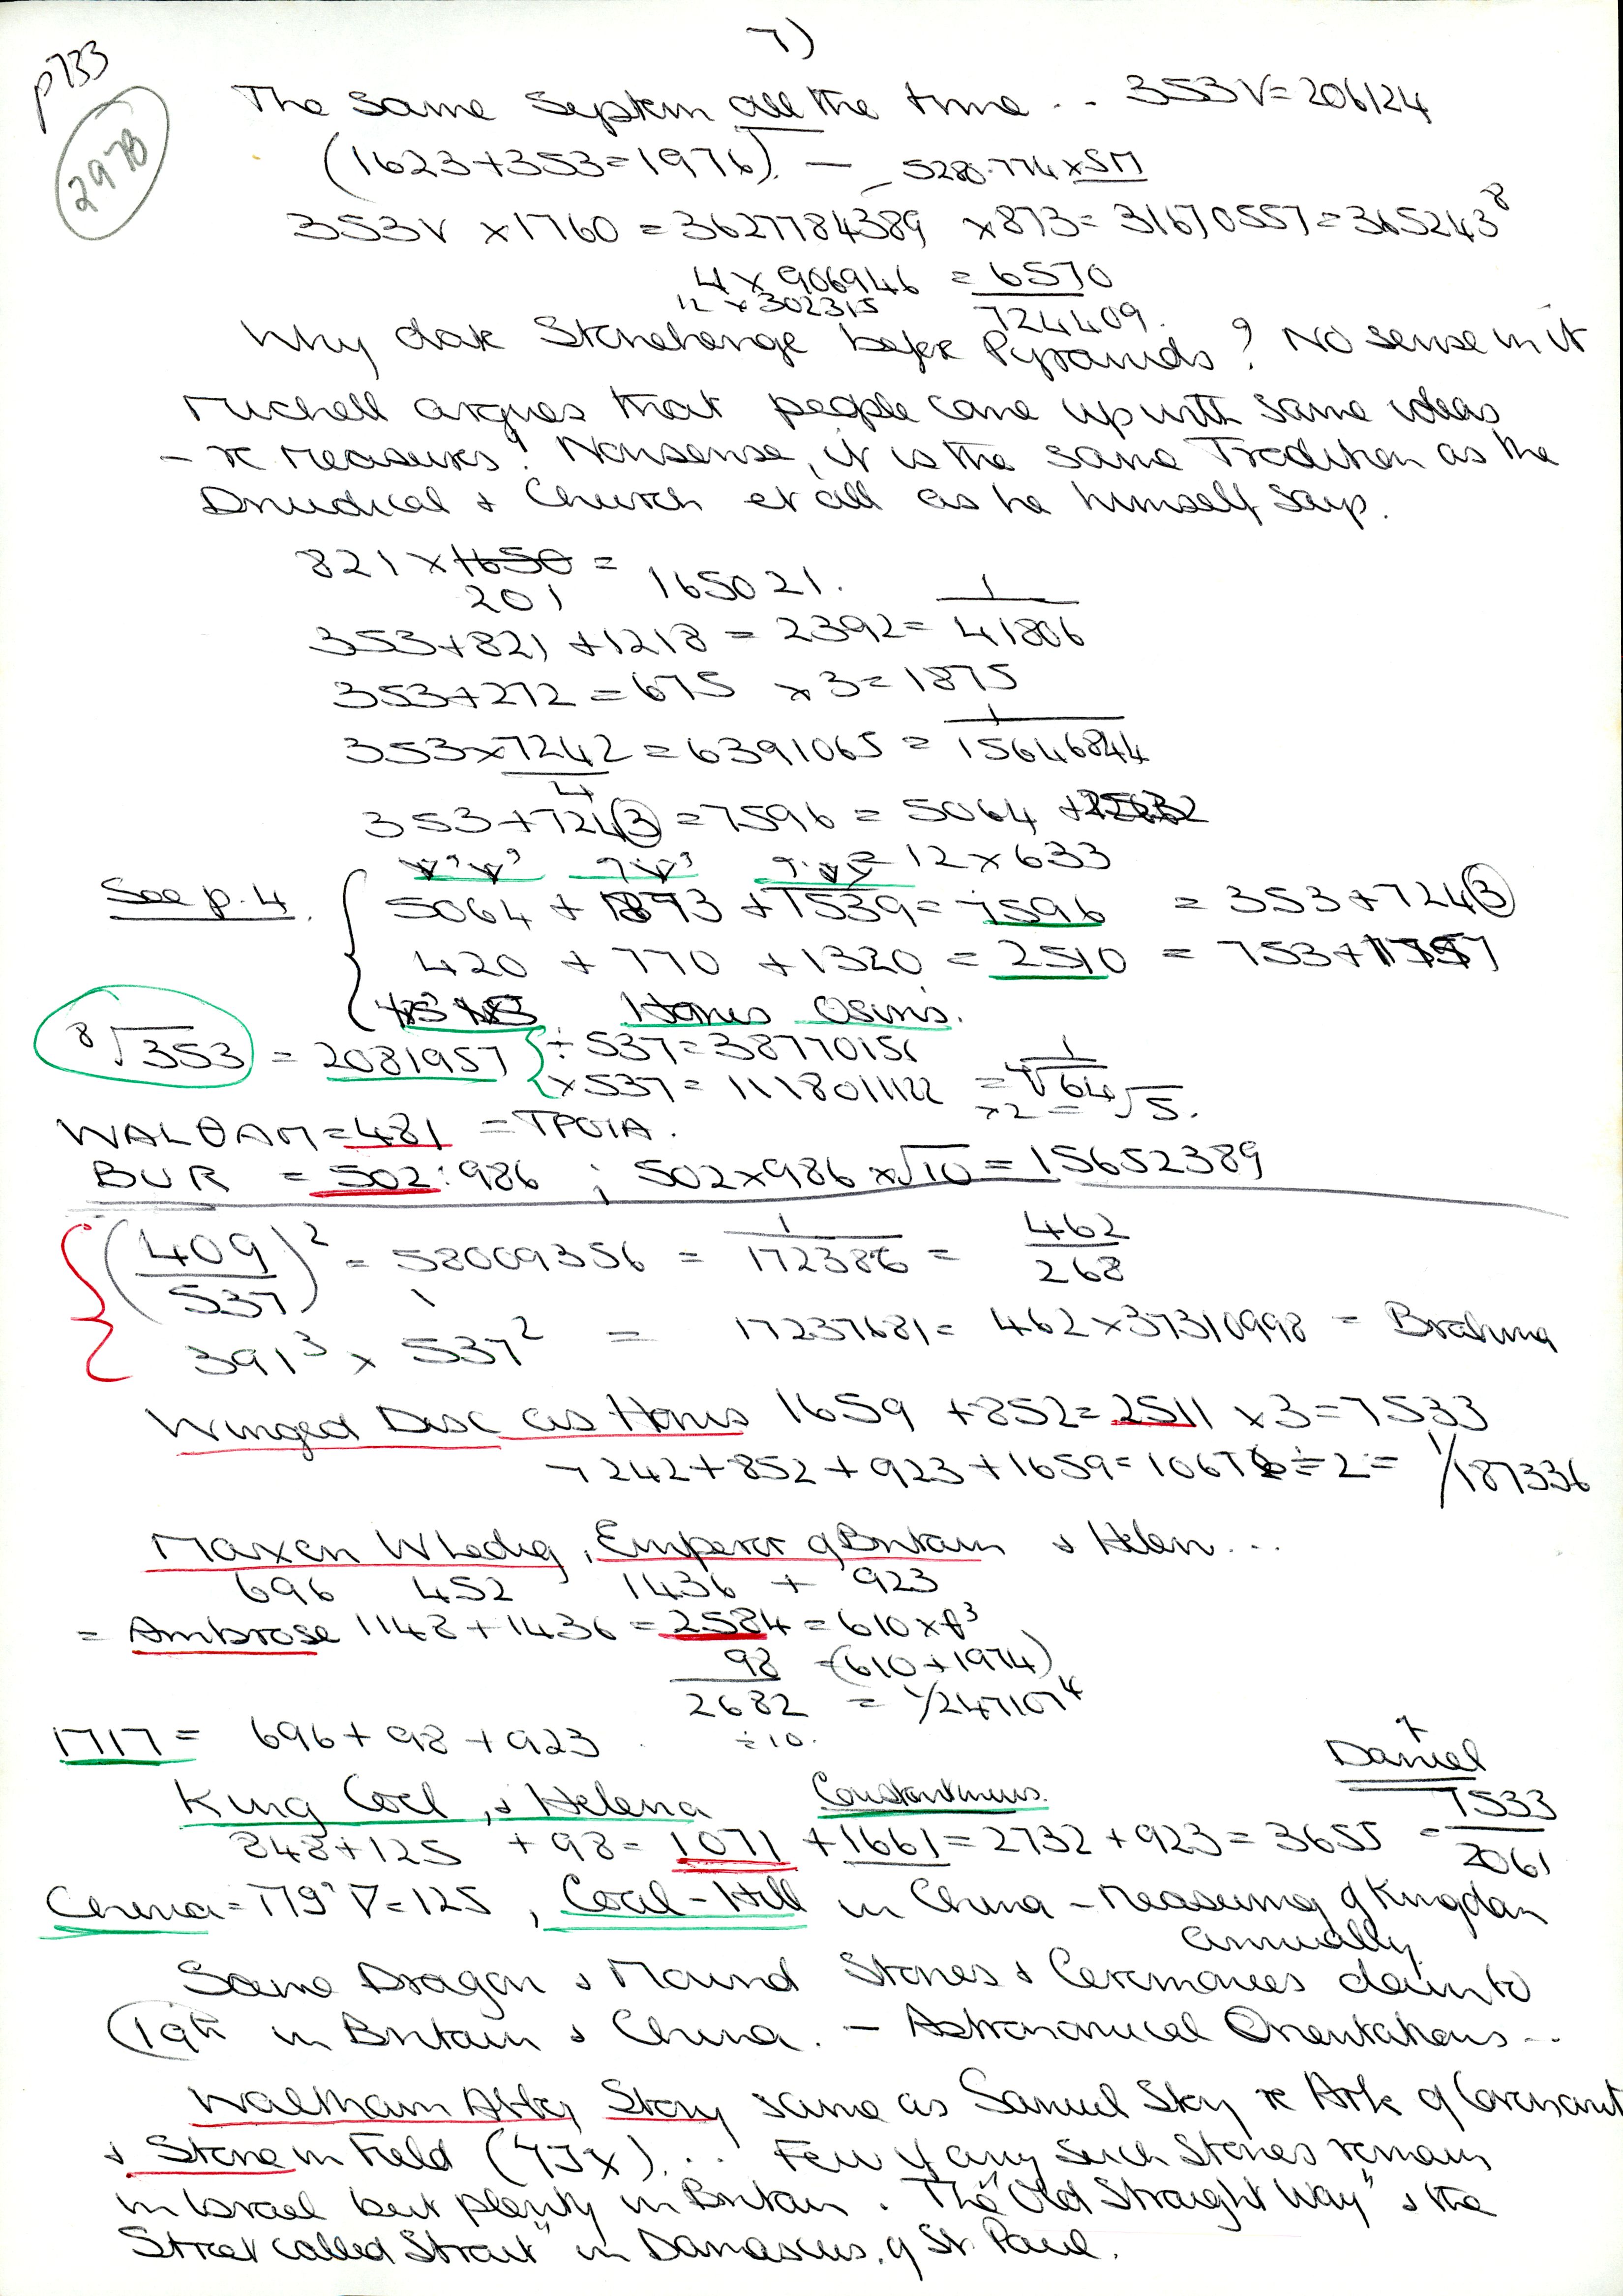 7)
p733
2978
The same system all the time .. 353V = 206124
(1623+353=1976). — 5280.774 x SM
353V x1760 = 3627784389 x873= 31670557=365243⁸
4 x 906946 = 6570
12 x 302315 724409.
Why date Stonehenge before Pyramids? No sense in it
Michell argues that people came up with same ideas
- re Measures? Nonsense, it is the same Tradition as the
Druidical & Church et all as he himself says.
821 x 1650 = 165021.
201
353+821+1218 = 2392 = 1/41806
353+272 = 675 x3=1875
353x7242/4 = 6391065 = 1/15646844
353+724(3) = 7596 = 5064 +2532
= 12 x 633
See p.4. 5064 + 1873 + 1539= 7596 = 353+724(3)
420 + 770 + 1320 = 2510 = 753+1757
Horus Osiris.
⁸√353 = 2081957 ÷537=38770156
x537= 111801122 = 1/√64
x2 = √5.
WALθAM=481 = TPOIA.
BUR = 502:986 ; 502x986x√10=15652389
(409/537)² = 58009356 = 1/172386 = 462/268
391³ x 537² = 17237681= 462x37310998 = Brahma
Winged Disc as Horus 1659 +852=2511 x3=7533
7242+852+923+1659=10676÷2= 1/187336
Maxen Wledig, Emperor of Britain & Helen...
696 452 1436 + 923
= Ambrose 1148+1436=2584=610xf³
98 =(610+1974)
2682 = 1/247107⁴
÷10.
1717= 696+98+923
Daniel
King Coel, & Helena Constantinus. 7533
848+125 +98= 1071 +1661=2732+923=3655 = 2061
China= 779°V=125, Coal-Hill in China - Measuring of Kingdom
annually
Same Dragon & Mound Stones & Ceremonies down to
19th in Britain & China. — Astronomical Orientations...
Waltham Abbey Story same as Samuel Story re Ark of Covenant
& Stone in Field ... Few if any such Stones remain
in Israel but plenty in Britain. The "Old Straight Way" & the
Street called Strait" in Damascus, of St. Paul.